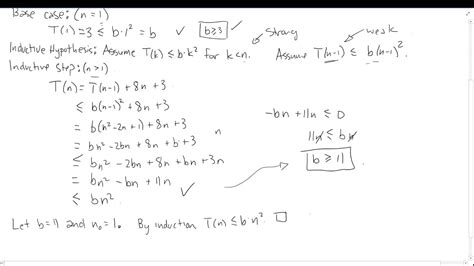 Base case: (n=1)
T(1)=3 ≤ b·1² = b ✓ [b≥3]
strong weak
Inductive Hypothesis: Assume T(k) ≤ b·k² for k<n. Assume T(n-1) ≤ b(n-1)².
Inductive Step: (n>1)
T(n) = T(n-1) + 8n + 3
≤ b(n-1)² + 8n + 3
= b(n²-2n+1) + 8n + 3 n
= bn² - 2bn + 8n + b + 3
≤ bn² - 2bn + 8n + bn + 3n
= bn² - bn + 11n
≤ bn² ✓
-bn + 11n ≤ 0
11n ≤ bn
b ≥ 11
Let b=11 and n₀=1. By induction T(n) ≤ b·n². □